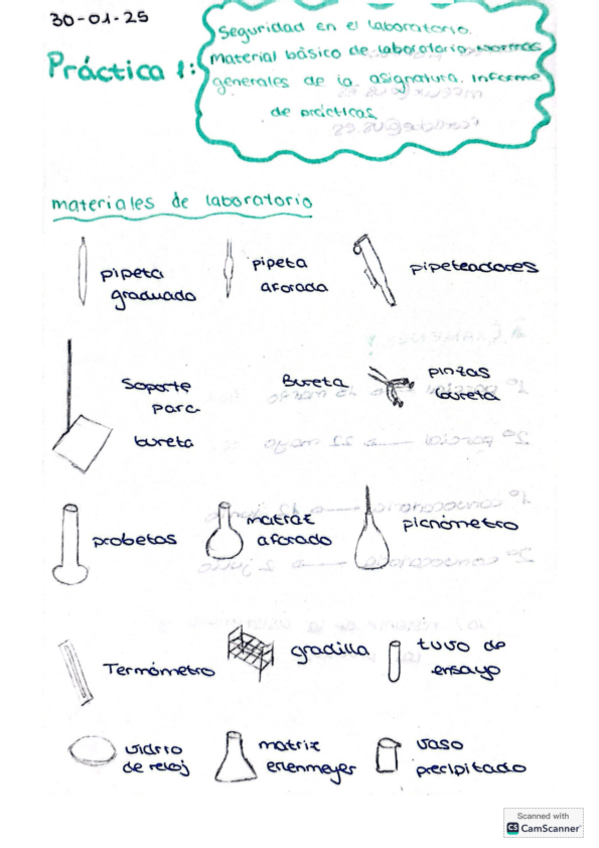 30-01-25
Práctica 1:
Seguridad en el laboratorio.
material básico de laboratorio. Normas
generales de la asignatura. Informe
de prácticas.
materiales de laboratorio
pipeta
graduada
pipeta
aforada
pipeteadores
Soporte
para
bureta
Bureta
pinzas
bureta
probetas
matraz
aforado
picnómetro
Termómetro
gradilla
tuvo de
ensayo
vidrio
de reloj
matriz
erlenmeyer
vaso
precipitado
Scanned with
CS CamScanner